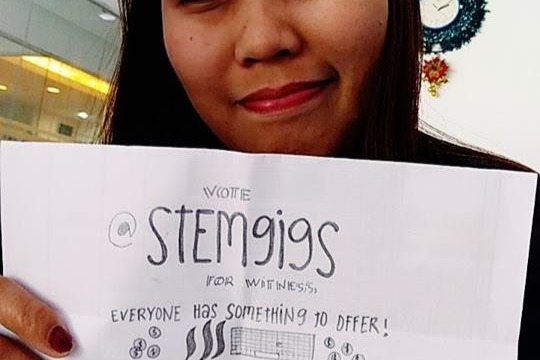 VOTE
@STEMgigS
FOR WITNESS,
EVERYONE HAS SOMETHING TO OFFER!